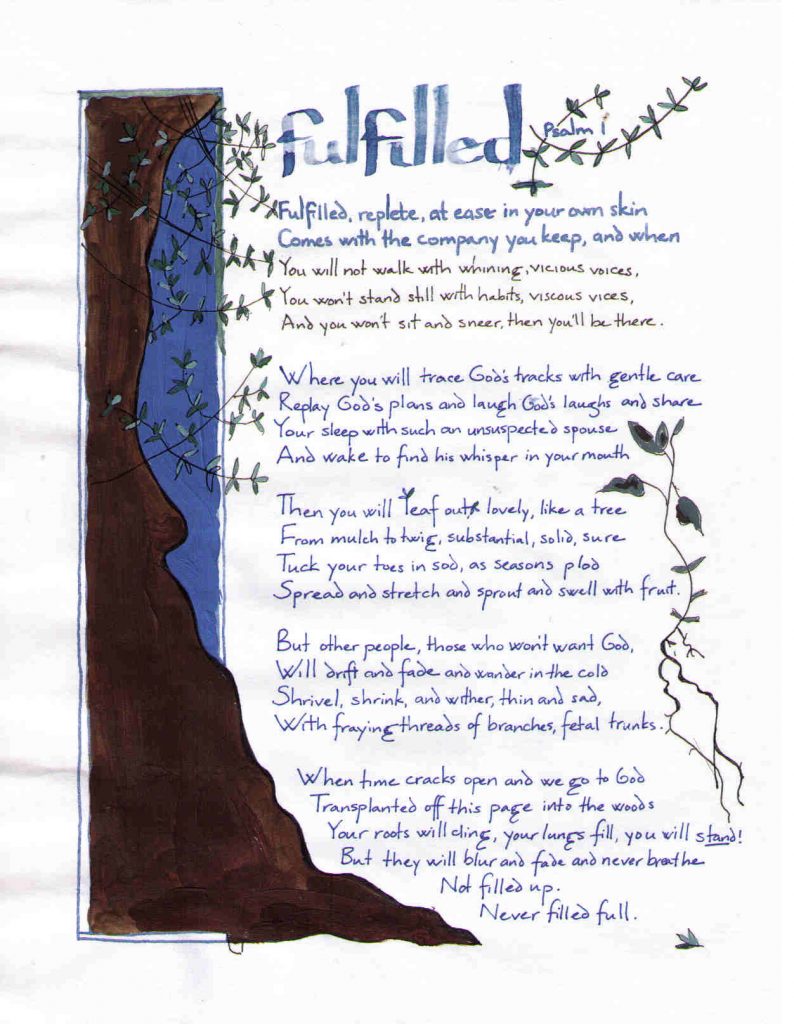 fulfilled
Psalm 1
Fulfilled, replete, at ease in your own skin
Comes with the company you keep, and when
You will not walk with whining, vicious voices,
You won't stand still with habits, viscous vices,
And you won't sit and sneer, then you'll be there.
Where you will trace God's tracks with gentle care
Replay God's plans and laugh God's laughs and share
Your sleep with such an unsuspected spouse
And wake to find his whisper in your mouth
Then you will leaf out, lovely, like a tree
From mulch to twig, substantial, solid, sure
Tuck your toes in sod, as seasons plod
Spread and stretch and sprout and swell with fruit.
But other people, those who won't want God,
Will drift and fade and wander in the cold
Shrivel, shrink, and wither, thin and sad,
With fraying threads of branches, fetal trunks.
When time cracks open and we go to God
Transplanted off this page into the woods
Your roots will cling, your lungs fill, you will stand!
But they will blur and fade and never breathe
Not filled up.
Never filled full.